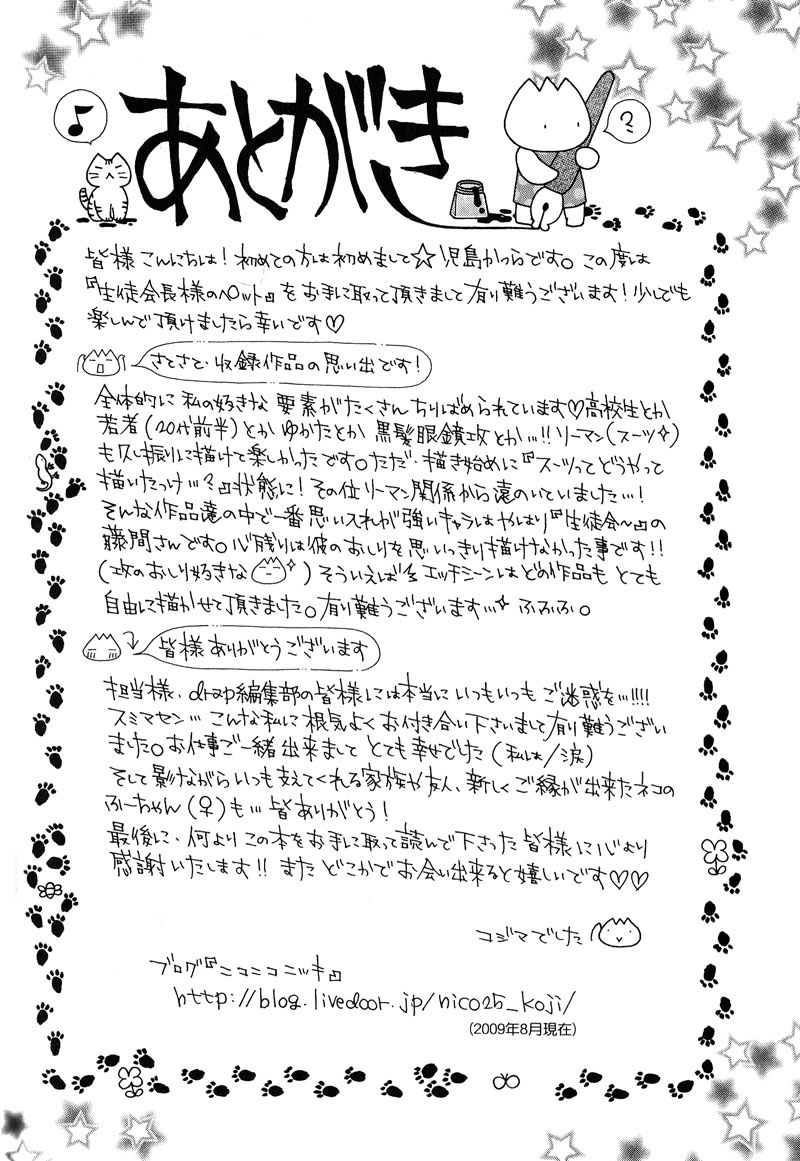 あとがき
?
皆様こんにちは！初めての方は初めまして☆児島かつらです。この度は
『生徒会長様のペット』をお手に取って頂きまして有り難うございます！少しでも
楽しんで頂けましたら幸いです♡
さてさて、収録作品の思い出です！
全体的に私の好きな要素がたくさんちりばめられています♡高校生とか
若者(20代前半)とかゆかたとか黒髪眼鏡攻とか…!!リーマン(スーツ✧)
も久し振りに描けて楽しかったです。ただ、描き始めに『スーツってどうやって
描いたっけ…?』状態に！その位リーマン関係から遠のいていました…！
そんな作品達の中で一番思い入れが強いキャラはやはり『生徒会〜』の
藤間さんです。心残りは彼のおしりを思いっきり描けなかった事です!!
(攻のおしり好きな ✧)そういえばエッチシーンはどの作品もとても
自由に描かせて頂きました。有り難うございます…✧ふふふ。
皆様ありがとうございます
担当様、drap編集部の皆様には本当にいつもいつもご迷惑を…!!!!
スミマセン…こんな私に根気よくお付き合い下さいまして有り難うござい
ました。お仕事ご一緒出来ましてとても幸せでした(私は/涙)
そして影ながらいつも支えてくれる家族や友人、新しくご縁が出来たネコの
ふーちゃん(♀)も…皆ありがとう！
最後に、何よりこの本をお手に取って読んで下さった皆様に心より
感謝いたします!!またどこかでお会い出来ると嬉しいです♡♡
コジマでした
ブログ『ニコニコニッキ』
http://blog.livedoor.jp/nico25_koji/
(2009年8月現在)